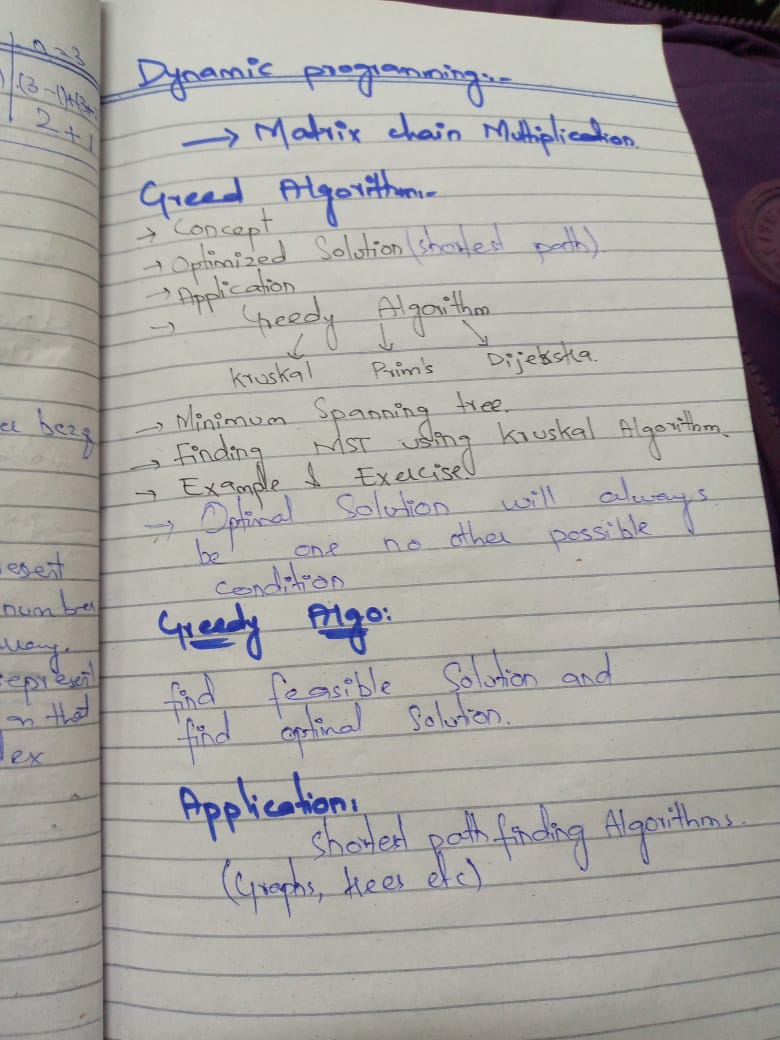 n=3
(3-1)+(3+
2+1
er bezg
esent
number
epresent
on that
ex
Dynamic programming:-
→ Matrix chain Multiplication.
Greed Algorithm:-
→ Concept
→ Optimized Solution (shortest path).
→ Application
→ Greedy Algorithm
Kruskal Prim's Dijekska.
→ Minimum Spanning tree.
→ finding MST using Kruskal Algorithm
→ Example & Exercise.
⇒ Optimal Solution will always
be one no other possible
condition
Greedy Algo:
find feasible Solution and
find optimal Solution.
Application:
shortest path finding Algorithms.
(Graphs, trees etc)